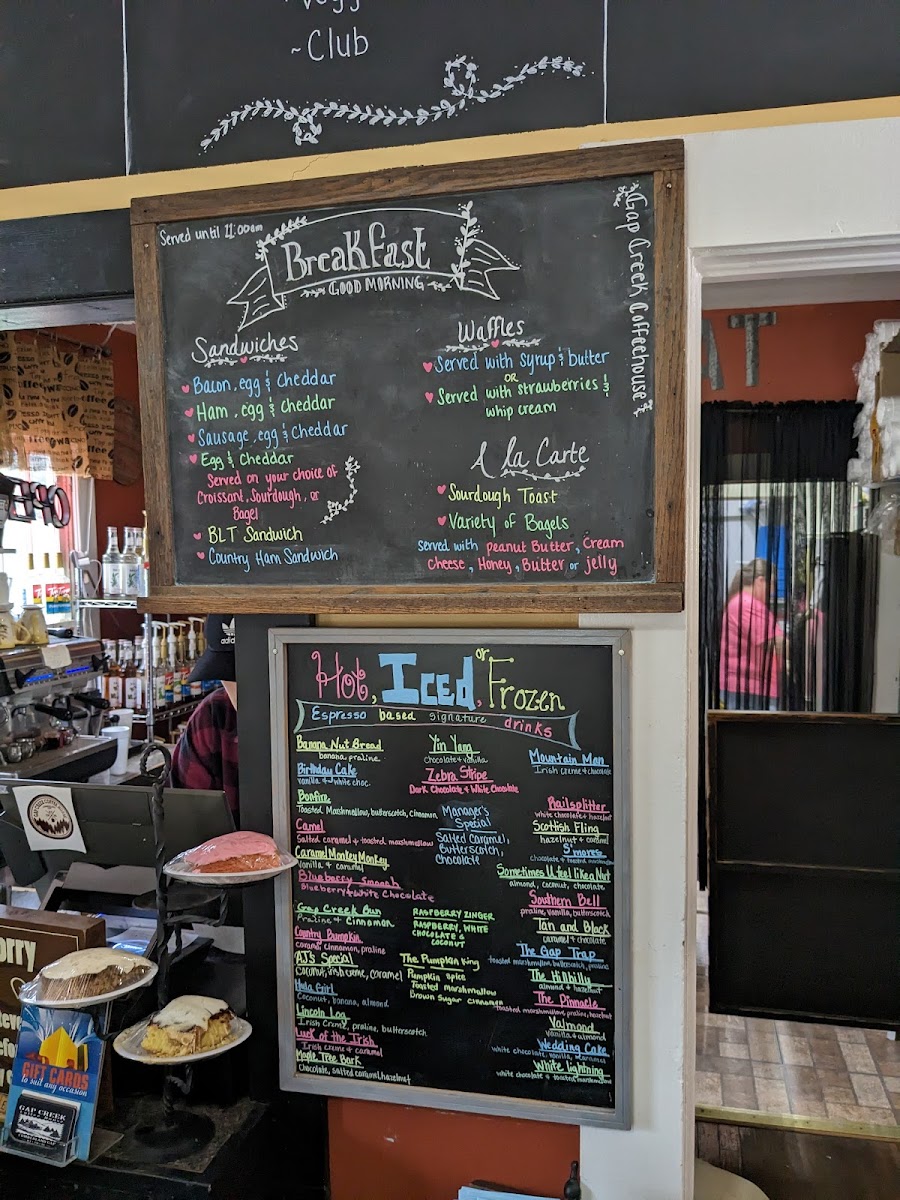 ~Club
Served until 11:00am
Breakfast
~GOOD MORNING~
Gap Creek Coffeehouse
Sandwiches
Bacon, egg & cheddar
Ham, egg & cheddar
Sausage, egg & cheddar
Egg & cheddar
Served on your choice of
Croissant, Sourdough, or
Bagel
BLT Sandwich
Country Ham Sandwich
Waffles
Served with syrup & butter
OR
Served with strawberries &
whip cream
A la Carte
Sourdough Toast
Variety of Bagels
served with peanut Butter, Cream
Cheese, Honey, Butter or jelly
Hot, Iced, or Frozen
Espresso based signature drinks
Banana Nut Bread
banana, praline
Birthday Cake
vanilla & white choc.
Bonfire
Toasted Marshmallow, butterscotch, cinnamon
Camel
Salted caramel & toasted marshmallow
Caramel Monkey Monkey
vanilla & caramel
Blueberry Smooch
Blueberry & white chocolate
Gap Creek Bun
Praline & Cinnamon
Country Bumpkin
caramel, cinnamon, praline
AJ's Special
Coconut, irish creme, caramel
Hula Girl
Coconut, banana, almond
Lincoln Log
Irish Creme, praline, butterscotch
Luck of the Irish
Irish creme & caramel
Maple Tree Bark
Chocolate, salted caramel, hazelnut
Yin Yang
chocolate & vanilla
Zebra Stripe
Dark Chocolate & White Chocolate
Manager's
Special
Salted Caramel,
Butterscotch,
Chocolate
RASPBERRY ZINGER
RASPBERRY, WHITE
CHOCOLATE &
COCONUT
The Pumpkin King
Pumpkin spice
Toasted marshmallow
Brown Sugar cinnamon
Mountain Man
Irish creme & chocolate
Railsplitter
white chocolate & hazelnut
Scottish Fling
hazelnut & caramel
S'mores
chocolate & toasted marshmallow
Sometimes U feel like a Nut
almond, coconut, chocolate
Southern Bell
praline, vanilla, butterscotch
Tan and Black
caramel & chocolate
The Gap Trap
toasted marshmallow, butterscotch, praline
The Hillbilly
almond & hazelnut
The Pinnacle
Toasted marshmallow, praline, hazelnut
Valmond
vanilla & almond
Wedding Cake
white chocolate, vanilla, caramel
White lightning
white chocolate & toasted marshmallow
OPE
adidas
AT
GIFT CARDS
to suit any occasion
GAP CREEK